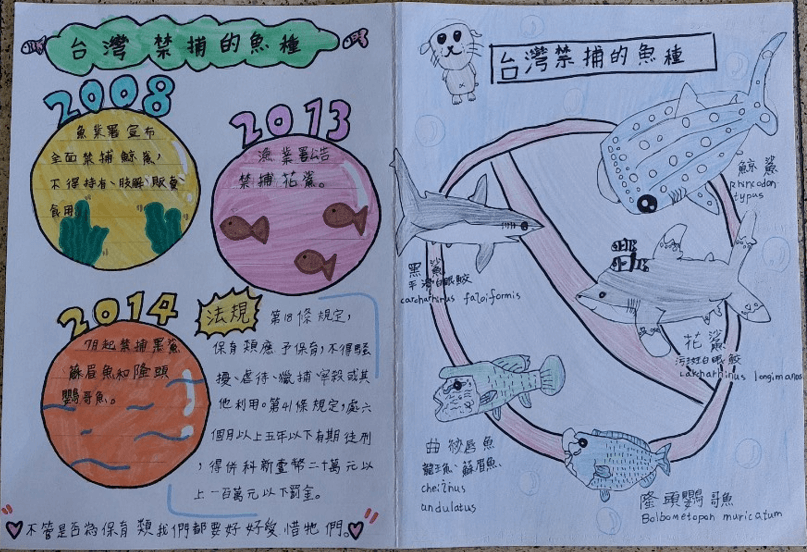 台灣禁捕的魚種
2008
魚業署宣布
全面禁捕鯨鯊,
不得持有、肢解、販賣
食用。
2013
漁業署公告
禁捕花鯊。
2014
7月起禁捕黑鯊
蘇眉魚和隆頭
鸚哥魚。
法規
第18條規定,
保育類應予保育,不得騷
擾、虐待、獵捕、宰殺或其
他利用。第41條規定,處六
個月以上五年以下有期徒刑
,得併科新臺幣二十萬元以
上一百萬元以下罰金。
不管是否為保育類我們都要好好愛惜牠們。
台灣禁捕的魚種
鯨鯊
Rhincodon
typus
黑鯊
平滑白眼鮫
carcharhinus falciformis
花鯊
污斑白眼鮫
carcharhinus longimanus
曲紋唇魚
龍王魚、蘇眉魚、
cheilinus
undulatus
隆頭鸚哥魚
Bolbometopon muricatum